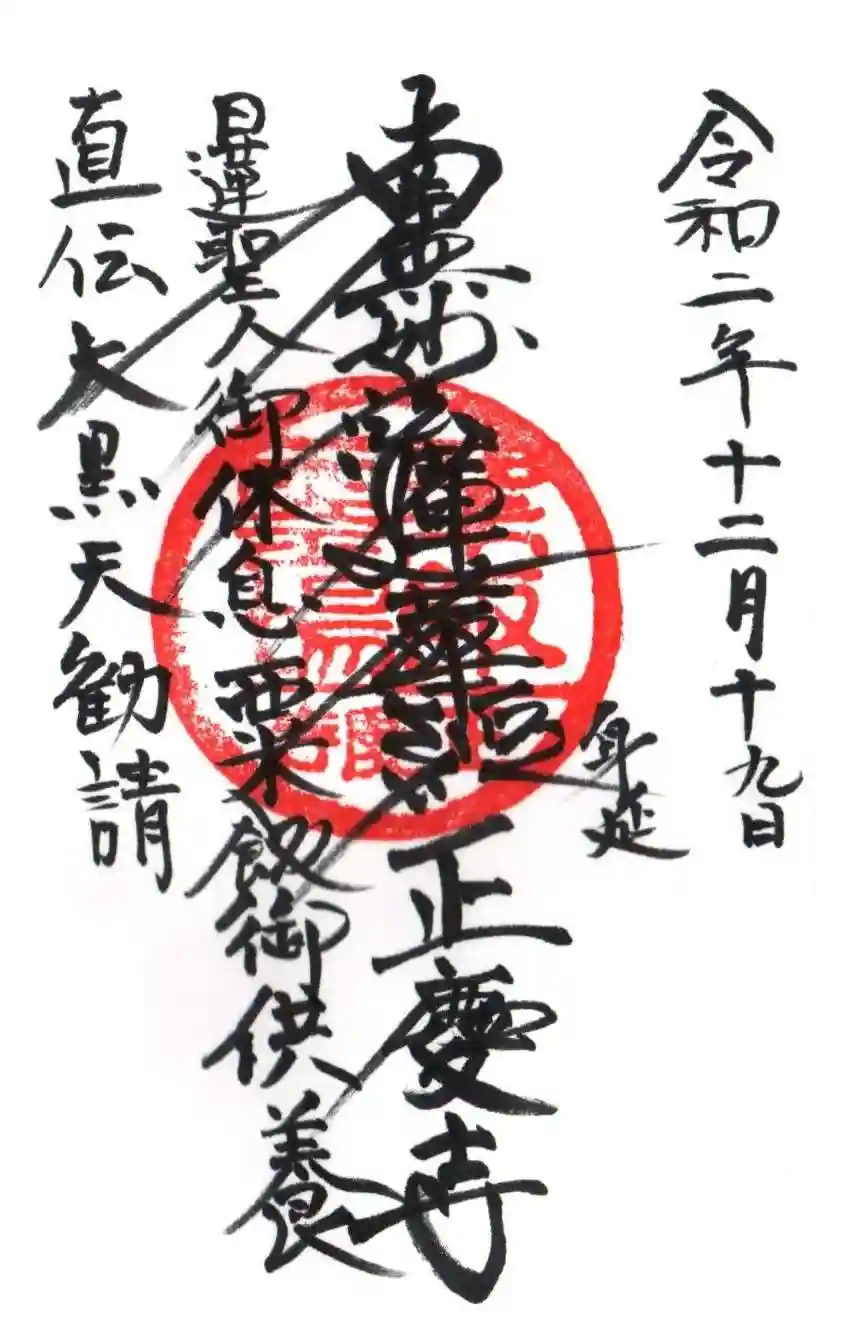 令和二年十二月十九日
身延
南無妙法蓮華経 正慶寺
日蓮聖人御休息粟飯御供養
直伝大黒天勧請